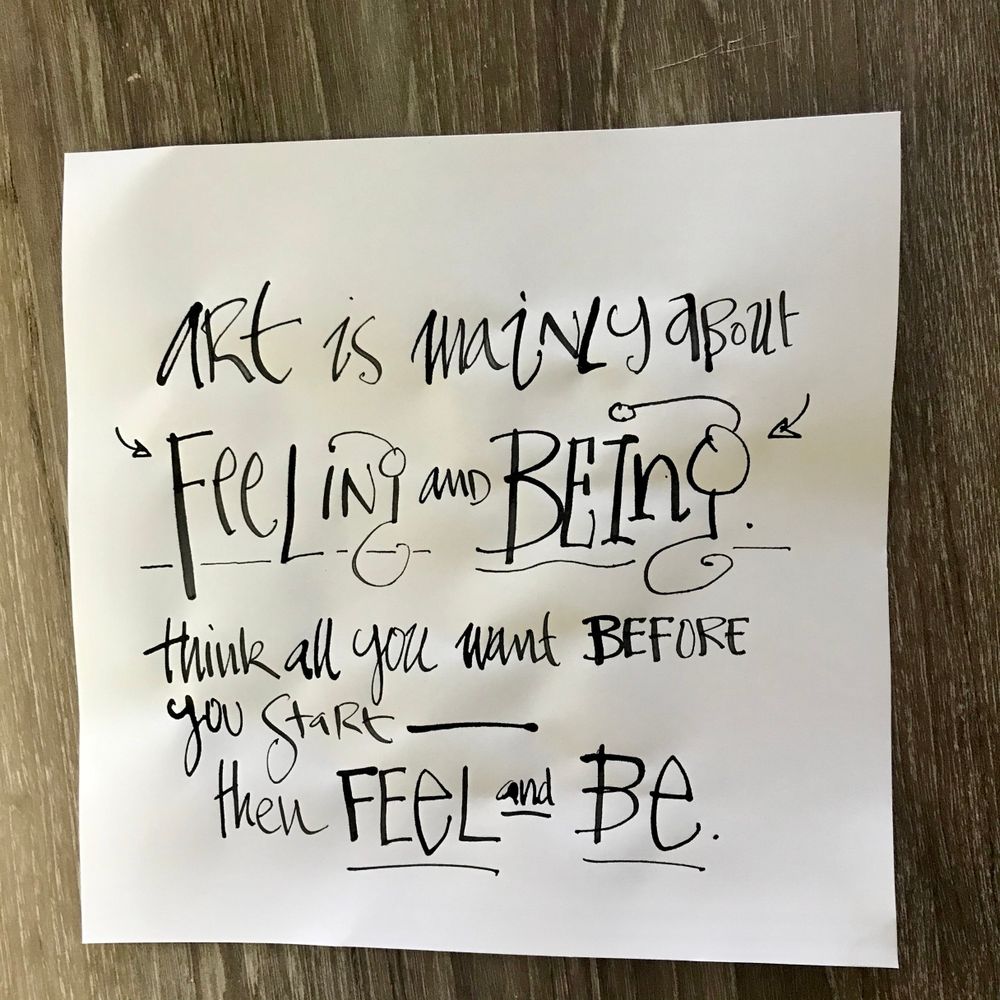 aRt is maiNLy aBout
FeeLiNg and BEIng.
think all you want BEFORE
you StaRt —
then FEeL and Be.